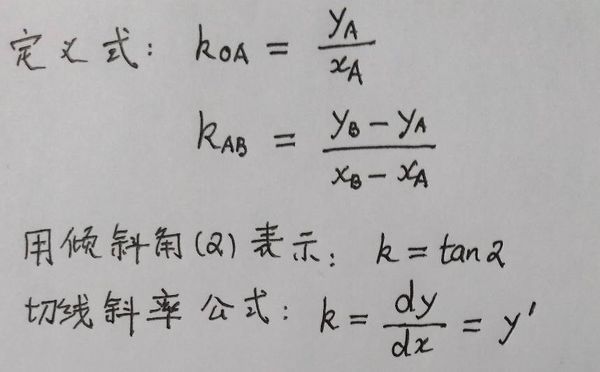 定义式: k_OA = y_A / x_A
k_AB = (y_B - y_A) / (x_B - x_A)
用倾斜角(α)表示: k = tanα
切线斜率公式: k = dy/dx = y'